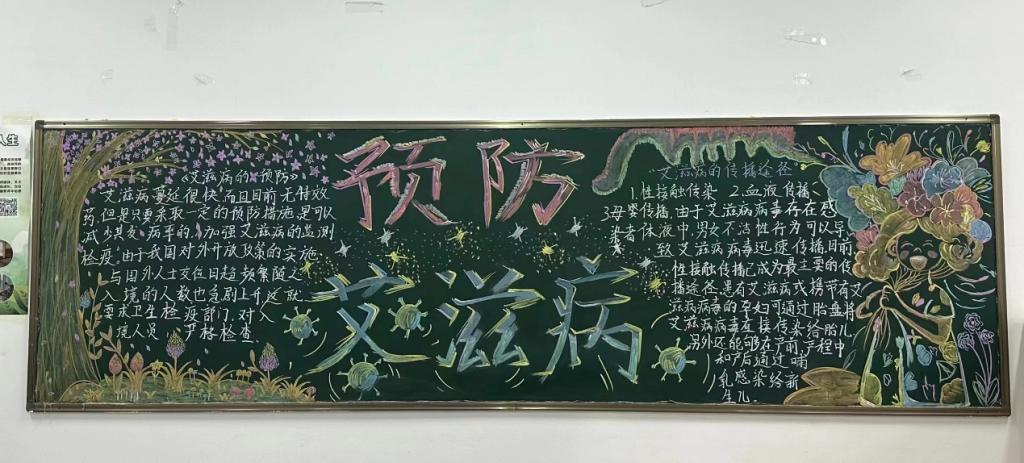 人生
预防
艾滋病
《艾滋病的预防》
艾滋病蔓延很快而且目前无特效
药,但是只要采取一定的预防措施是可以
减少其发病率的,加强艾滋病的监测
检疫,由于我国对外开放政策的实施
与国外人士交往日趋频繁随之
入境的人数也急剧上升这就
要求卫生检疫部门,对入
境人员 严格检查
"艾滋病的传播途径
1.性接触传染 2.血液传播、
3母婴传播,由于艾滋病病毒存在感
染者体液中,男女不洁性行为可以导
致艾滋病病毒迅速传播目前
性接触传播已成为最主要的传
播途径患有艾滋病或携带有艾
滋病病毒的孕妇可通过胎盘将
艾滋病病毒直接传染给胎儿
另外还能够在产前产程中
和产后通过哺
乳感染给新
生儿。